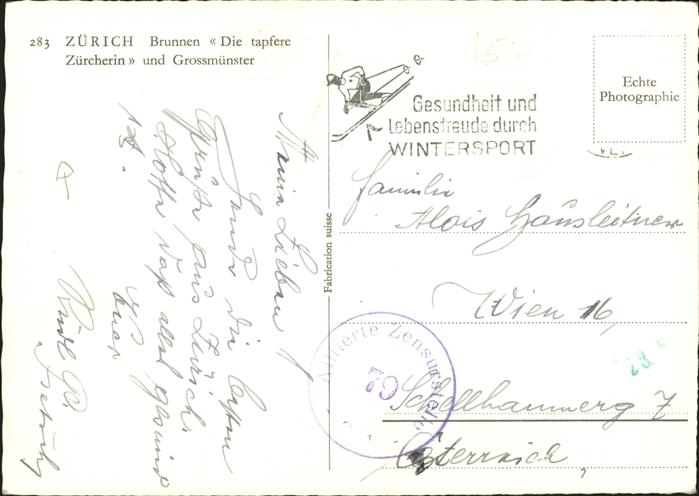 283 ZÜRICH Brunnen « Die tapfere
Zürcherin » und Grossmünster
Meine Lieben!
Sende die besten
Grüße aus Zürich.
Hoffe daß alles gesund
ist.
Rudi
Fabrication suisse
Gesundheit und
Lebensfreude durch
WINTERSPORT
Echte
Photographie
Familie
Alois Häusleitner
Wien 16,
Schellhammerg 7
Österreich,
Alliierte Zensurstelle
79